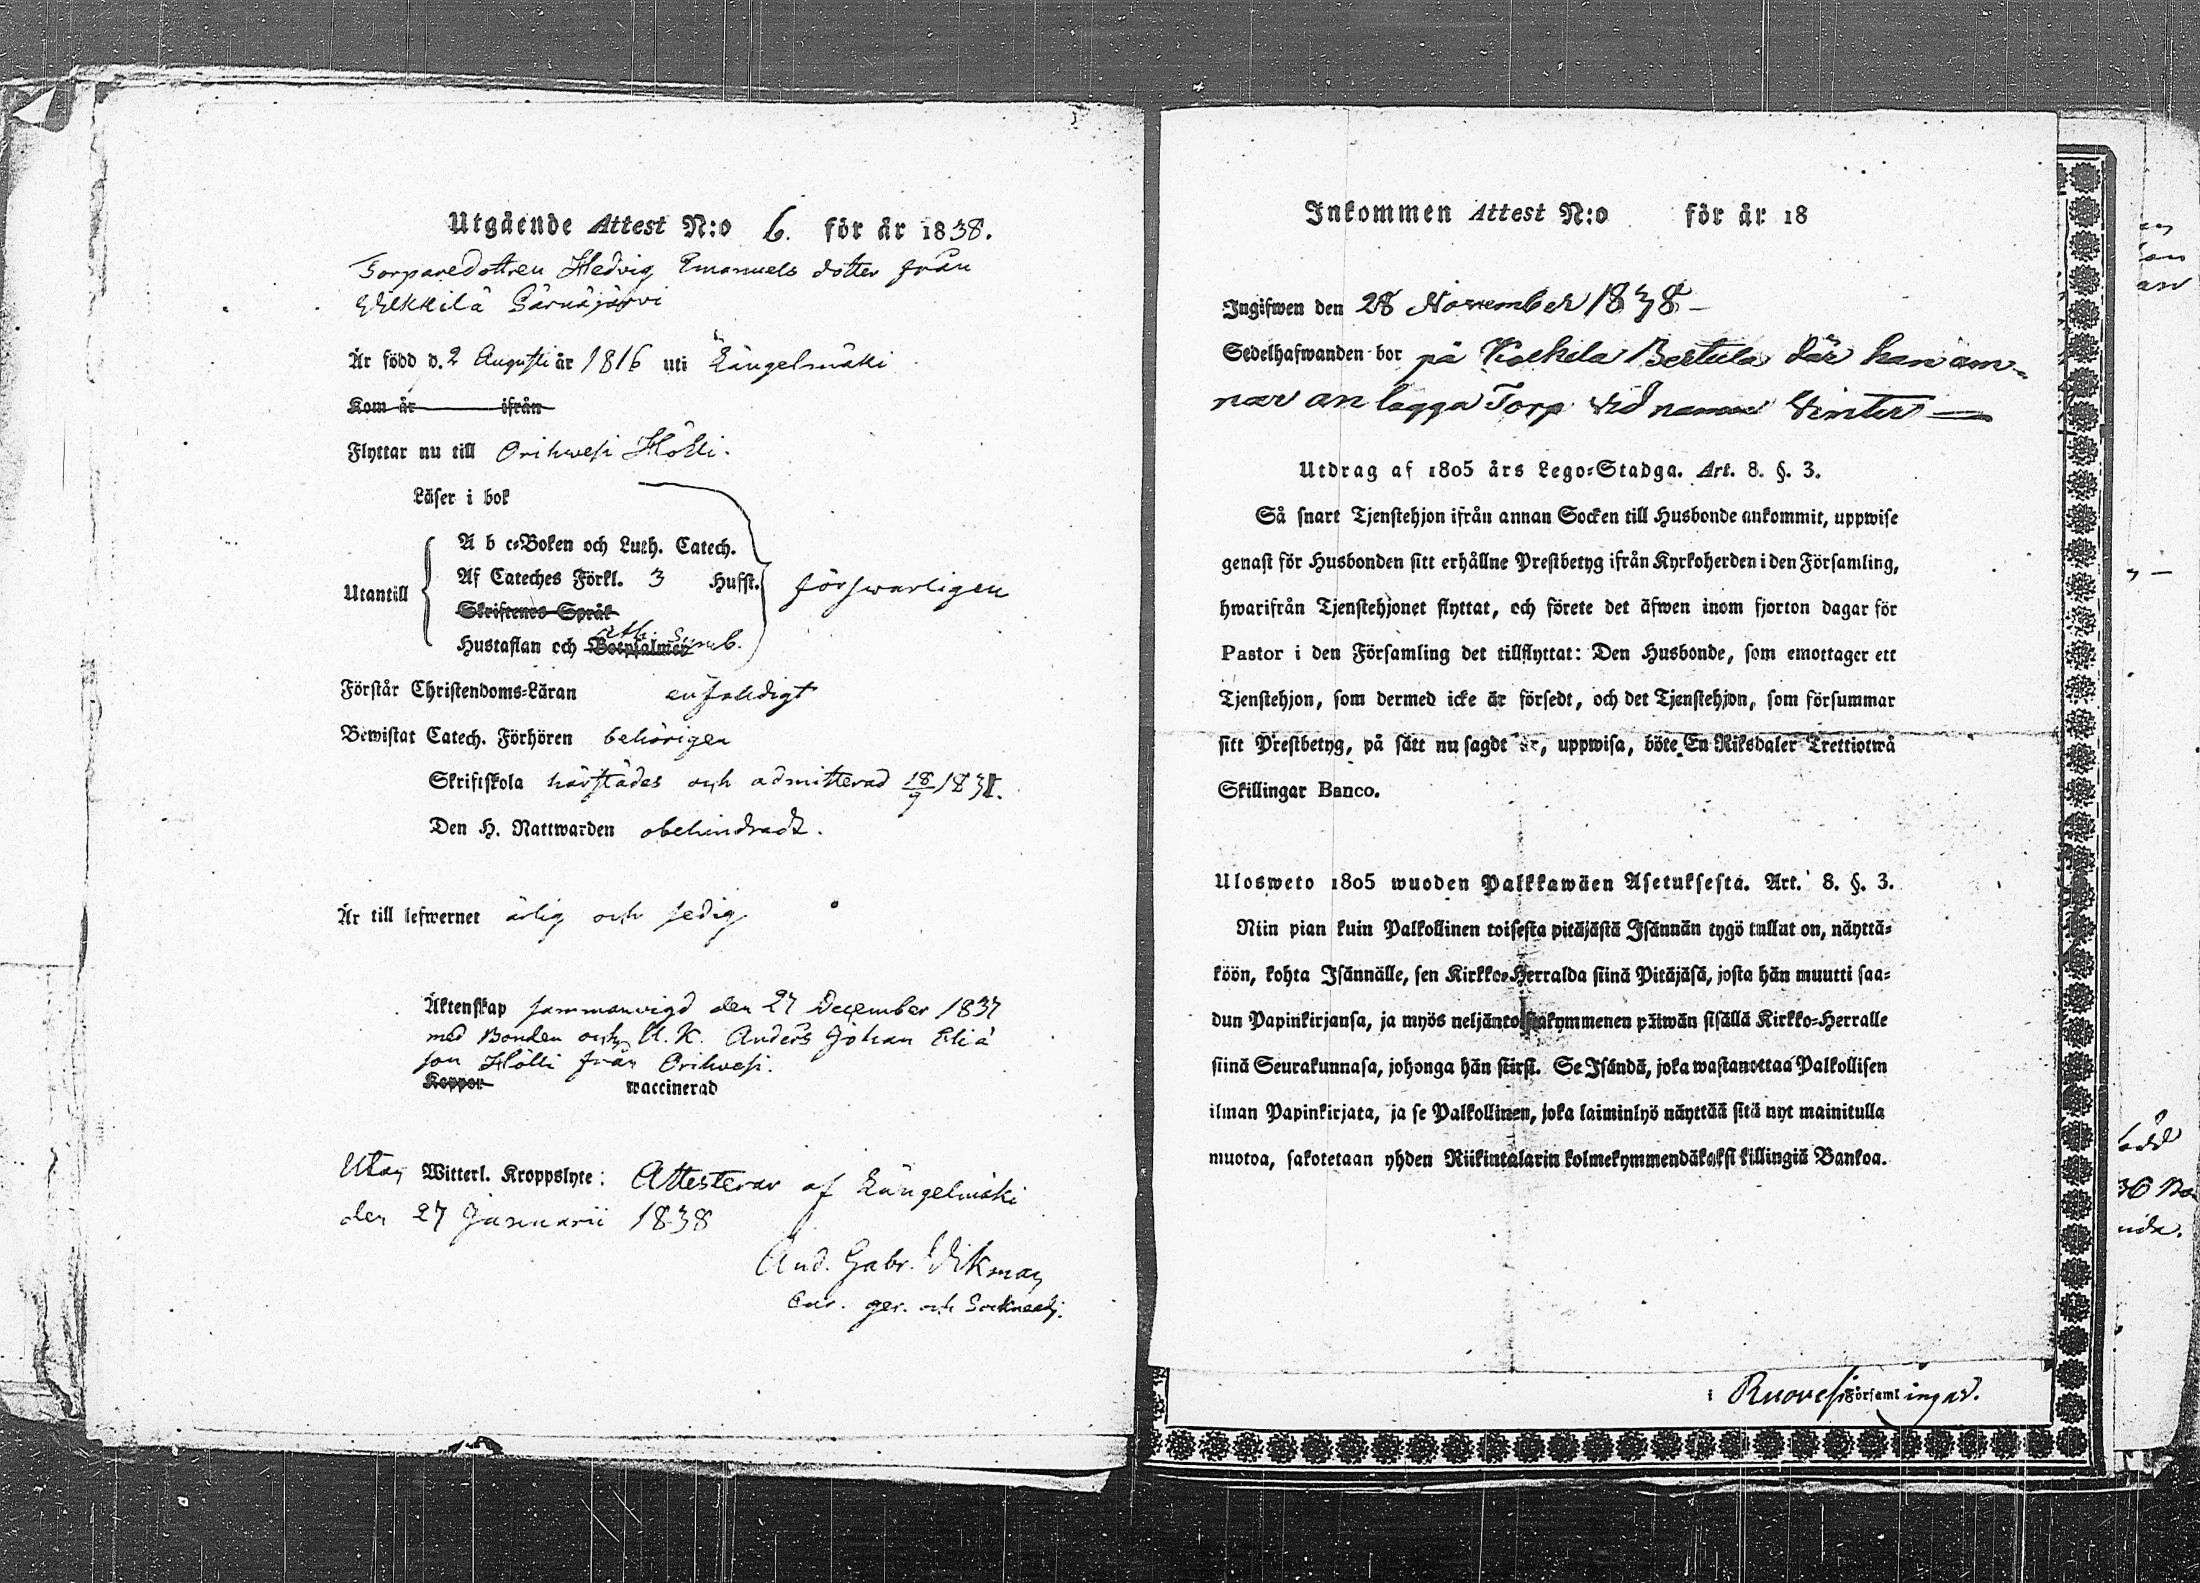 Utgående Attest N:o 6. för år 1838.
Torparedottren Hedvig Emanuels dotter från
Wilkkilä Särkijärvi
Är född d. 2 Augusti år 1816 uti Längelmäki
Kom år ifrån
Flyttar nu till Orihwesi Hölli.
Läser i bok
Utantill
A b c-Boken och Luth. Catech.
Af Cateches Förkl. 3 Hufst.
Skriftenes Språk
Hustaflan och Botpsalmen ath. Symb.
försvarligen
Förstår Christendoms-Läran enfaldigt
Bewistat Catech. Förhören behörigen
Skriftskola härstädes och admitterad 18/9 1831.
Den H. Nattwarden obehindradt.
Är till lefwernet ärlig och sedig
Äktenskap sammanvigd den 27 December 1837
med Bonden och U. K. Anders Johan Elia
son Hölli från Orihvesi.
Koppor waccinerad
Utan Witterl. Kroppslyte: Attesterar af Längelmäki
den 27 Januarii 1838
And. Gabr. Wikman
Cur. ger. och Sockneadj.
Inkommen Attest N:o för år 18
Ingifwen den 28 November 1838 –
Sedelhafwanden bor på Bertula där han äm=
nar an lägga Torp vid namn Vinter —
Utdrag af 1805 års Lego-Stadga. Art. 8. §. 3.
Så snart Tjenstehjon ifrån annan Socken till Husbonde ankommit, uppwise
genast för Husbonden sitt erhållne Prestbetyg ifrån Kyrkoherden i den Församling,
hwarifrån Tjenstehjonet flyttat, och förete det äfwen inom fjorton dagar för
Pastor i den Församling det tillflyttat: Den Husbonde, som emottager ett
Tjenstehjon, som dermed icke är försedt, och det Tjenstehjon, som försummar
sitt Prestbetyg, på sätt nu sagdt är, uppwisa, böte En Riksdaler Trettiotwå
Skillingar Banco.
Ulosweto 1805 wuoden Palkkawäen Asetuksesta. Art. 8. §. 3.
Niin pian kuin Palkollinen toisesta pitäjästä Isännän tygö tullut on, näyttä=
köön, kohta Isännälle, sen Kirkko-Herralda siinä Pitäjäsä, josta hän muutti saa=
dun Papinkirjansa, ja myös neljäntoistakymmenen päiwän sisällä Kirkko-Herralle
siinä Seurakunnasa, johonga hän siirsi. Se Isändä, joka wastanottaa Palkollisen
ilman Papinkirjata, ja se Palkollinen, joka laiminlyö näyttää sitä nyt mainitulla
muotoa, sakotetaan yhden Riikintalarin kolmekymmendäkaksi killingiä Bankoa.
i Ruovesi Församlingar.